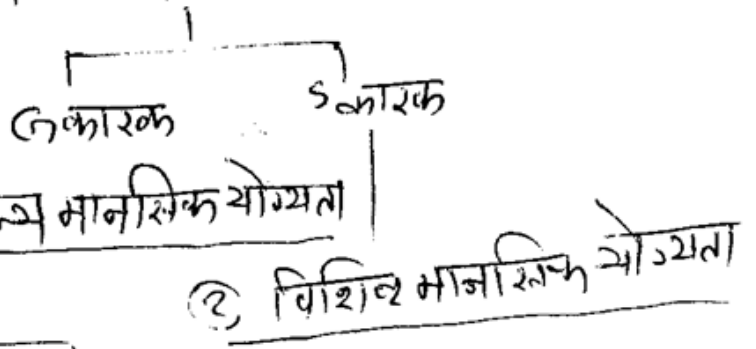 G कारक S कारक
न्य मानसिक योग्यता
② विशिष्ट मानसिक योग्यता